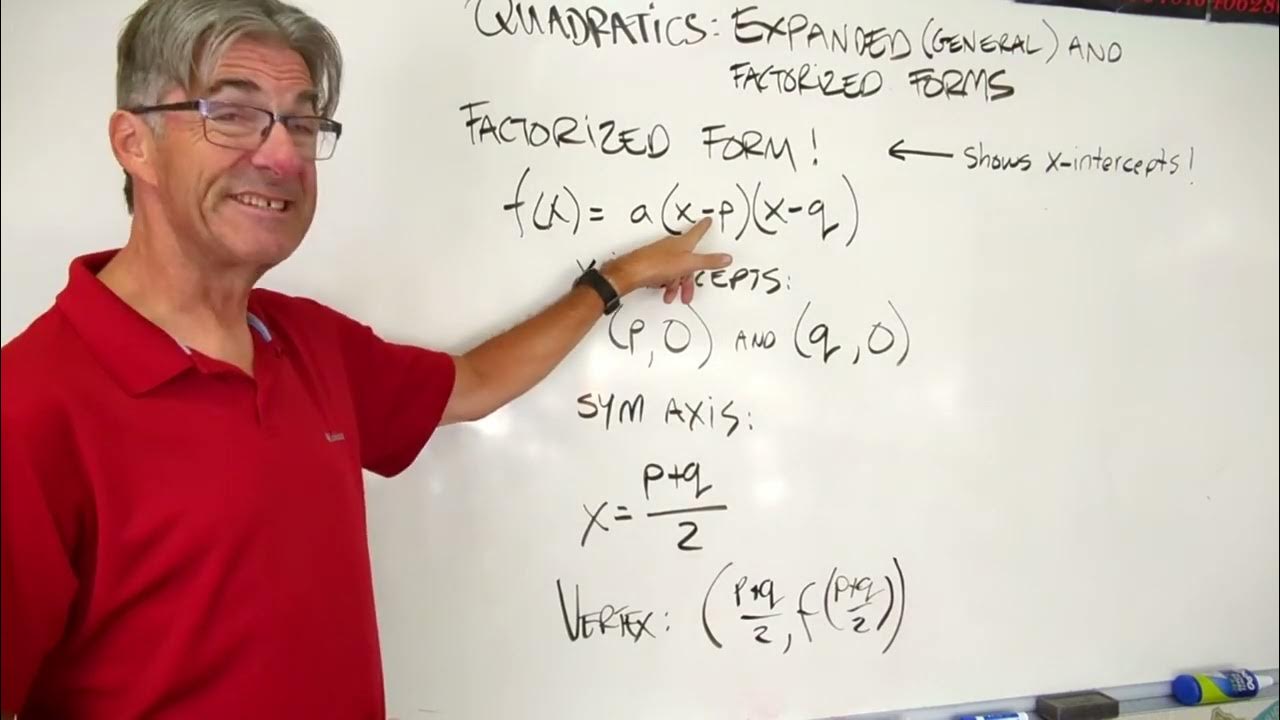 QUADRATICS: EXPANDED (GENERAL) AND
FACTORIZED FORMS
FACTORIZED FORM!
← Shows x-intercepts!
f(x) = a(x-p)(x-q)
(p,0) AND (q,0)
SYM AXIS:
x = p+q/2
VERTEX: (p+q/2, f(p+q/2))